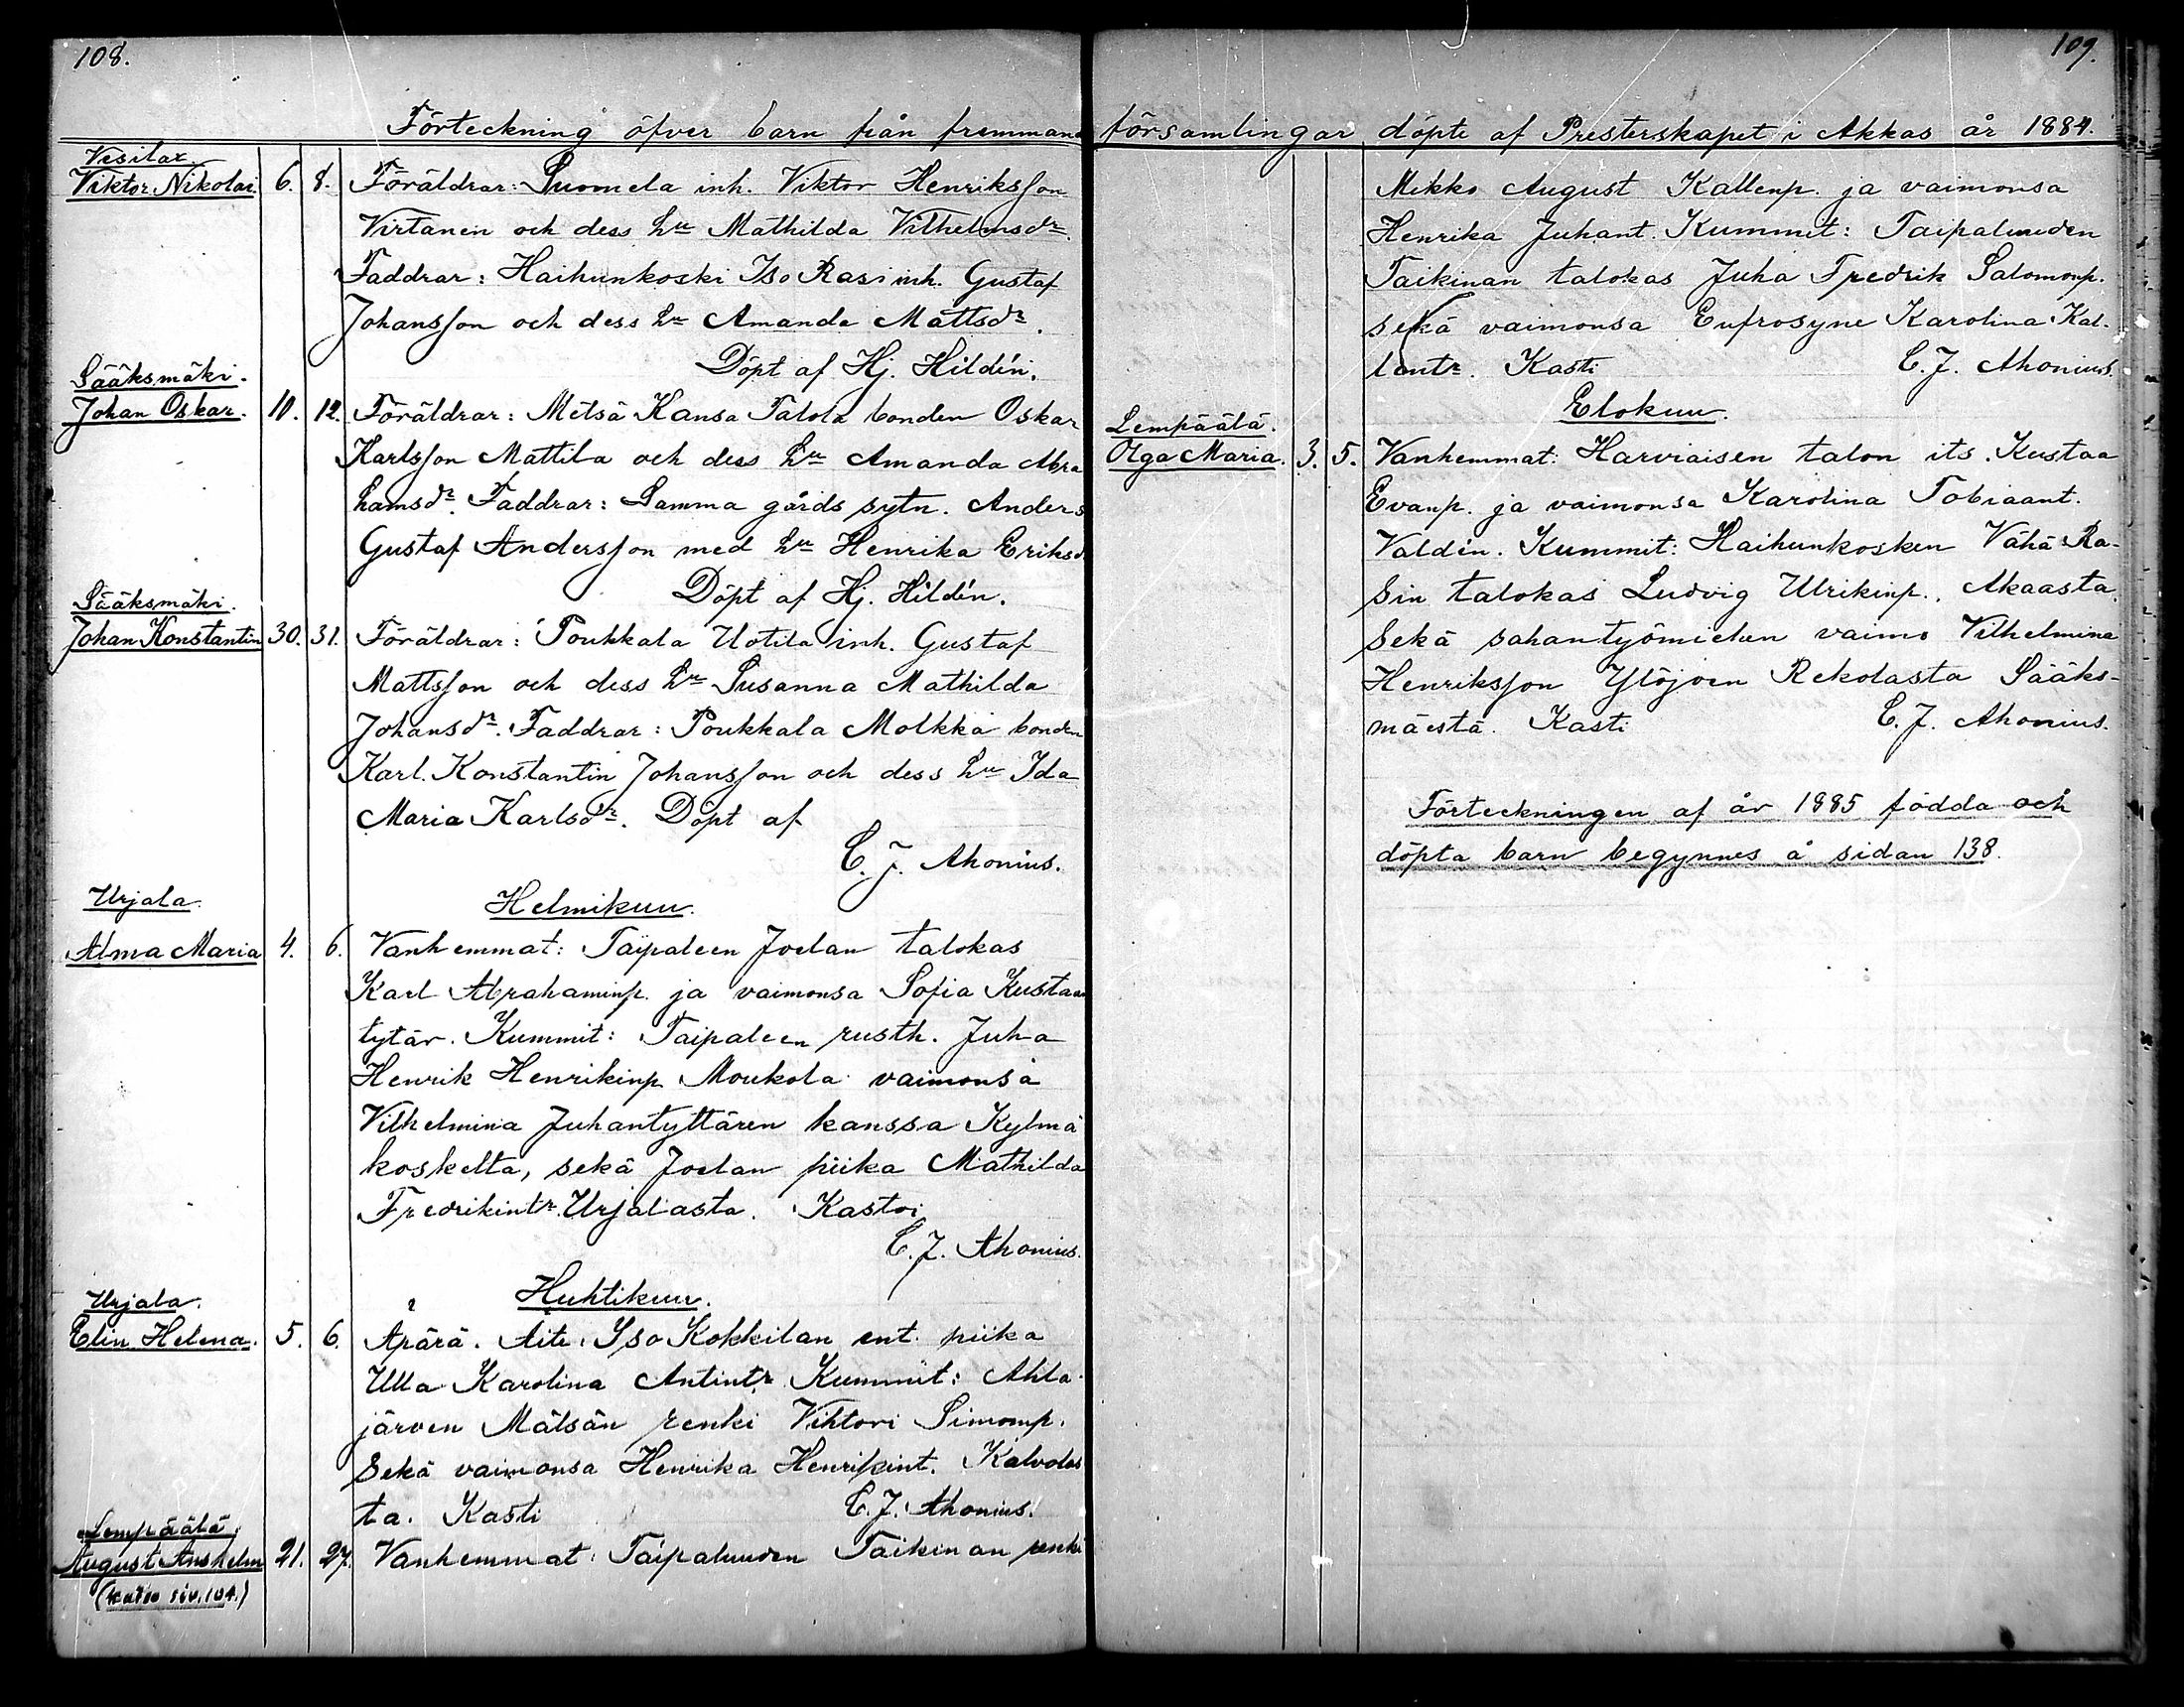 108.
Förteckning öfver barn från främmande
Vesilax.
Viktor Nikolai. 6. 8. Föräldrar: Suomela inh. Viktor Henriksson
Virtanen och dess hu Mathilda Vilhelmsdr.
Faddrar: Haihunkoski Iso Rasi inh. Gustaf
Johansson och dess hu Amanda Mattsdr.
Döpt af Hj. Hildén.
Sääksmäki.
Johan Oskar. 10. 12. Föräldrar: Metsä Kansa Talola bonden Oskar
Karlsson Mattila och dess hu Amanda Abra
hamsdr. Faddrar: Samma gårds sytn. Anders
Gustaf Andersson med hu Henrika Eriksd
Döpt af Hj. Hildén.
Sääksmäki.
Johan Konstantin 30. 31. Föräldrar: Poukkala Uotila inh. Gustaf
Mattsson och dess hu Susanna Mathilda
Johansdr. Faddrar: Poukkala Molkka bonden
Karl Konstantin Johansson och dess hu Ida
Maria Karlsdr. Döpt af
C. J. Ahonius.
Helmikuu.
Urjala.
Alma Maria 4. 6. Vanhemmat: Taipaleen Joelan talokas
Karl Abrahaminp. ja vaimonsa Sofia Kustaan
tytär. Kummit: Taipaleen rusth. Juha
Henrik Henrikinp Moukola vaimonsa
Vilhelmina Juhantyttären kanssa Kylmä
koskelta, sekä Joelan piika Mathilda
Fredrikintr. Urjalasta. Kastoi
C. J. Ahonius.
Huhtikuu.
Urjala.
Elin Helena. 5. 6. Äpärä. Äiti: Iso Kokkilan ent. piika
Ulla Karolina Antintr. Kummit: Ahla-
järven Mälsän renki Vihtori Simonp.
Sekä vaimonsa Henrika Henrikint. Kalvolas
ta. Kasti C. J. Ahonius.
Lempäälä.
August Anshelm 21. 27. Vanhemmat: Taipaluuden Taikinan renki
(katso siv. 104.)
109.
församlingar döpte af Presterskapet i Akkas år 1884.
Mikko August Kallenp. ja vaimonsa
Henrika Juhant. Kummit: Taipaluuden
Taikinan talokas Juha Fredrik Salomonp.
sekä vaimonsa Eufrosyne Karolina Kal-
lentr. Kasti C. J. Ahonius.
Elokuu.
Lempäälä.
Olga Maria. 3. 5. Vanhemmat: Harviaisen talon its. Kustaa
Evanp. ja vaimonsa Karolina Tobiaant.
Valdén. Kummit: Haihunkosken Vähä-Ra-
sin talokas Ludvig Ulrikinp. Akaasta.
Sekä sahantyömiehen vaimo Vilhelmina
Henriksson Ylöjoen Rekolasta Sääks-
mäestä. Kasti C. J. Ahonius.
Förteckningen af år 1885 födda och
döpta barn begynnes å sidan 138.